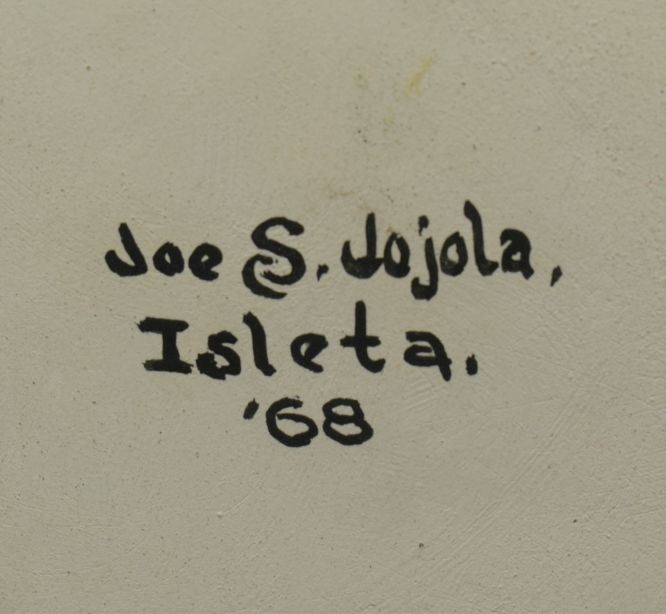 Joe S. Jojola,
Isleta.
'68